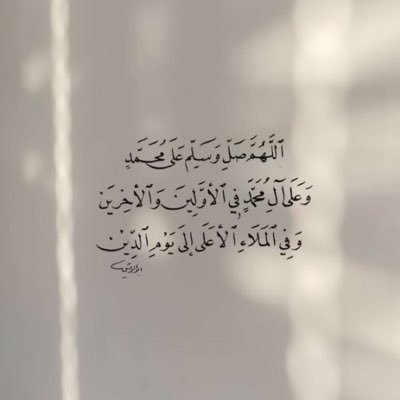 ٱللَّهُمَّ صَلِّ وَسَلِّم عَلَى مُحَمَّدٍ
وَعَلَى آلِ مُحَمَّدٍ فِي ٱلأَوَّلِينَ وَٱلأَخِرِين
وَفِي ٱلمَلَاءِ ٱلأَعلَى إلَى يَوْمِ ٱلدِّيْن